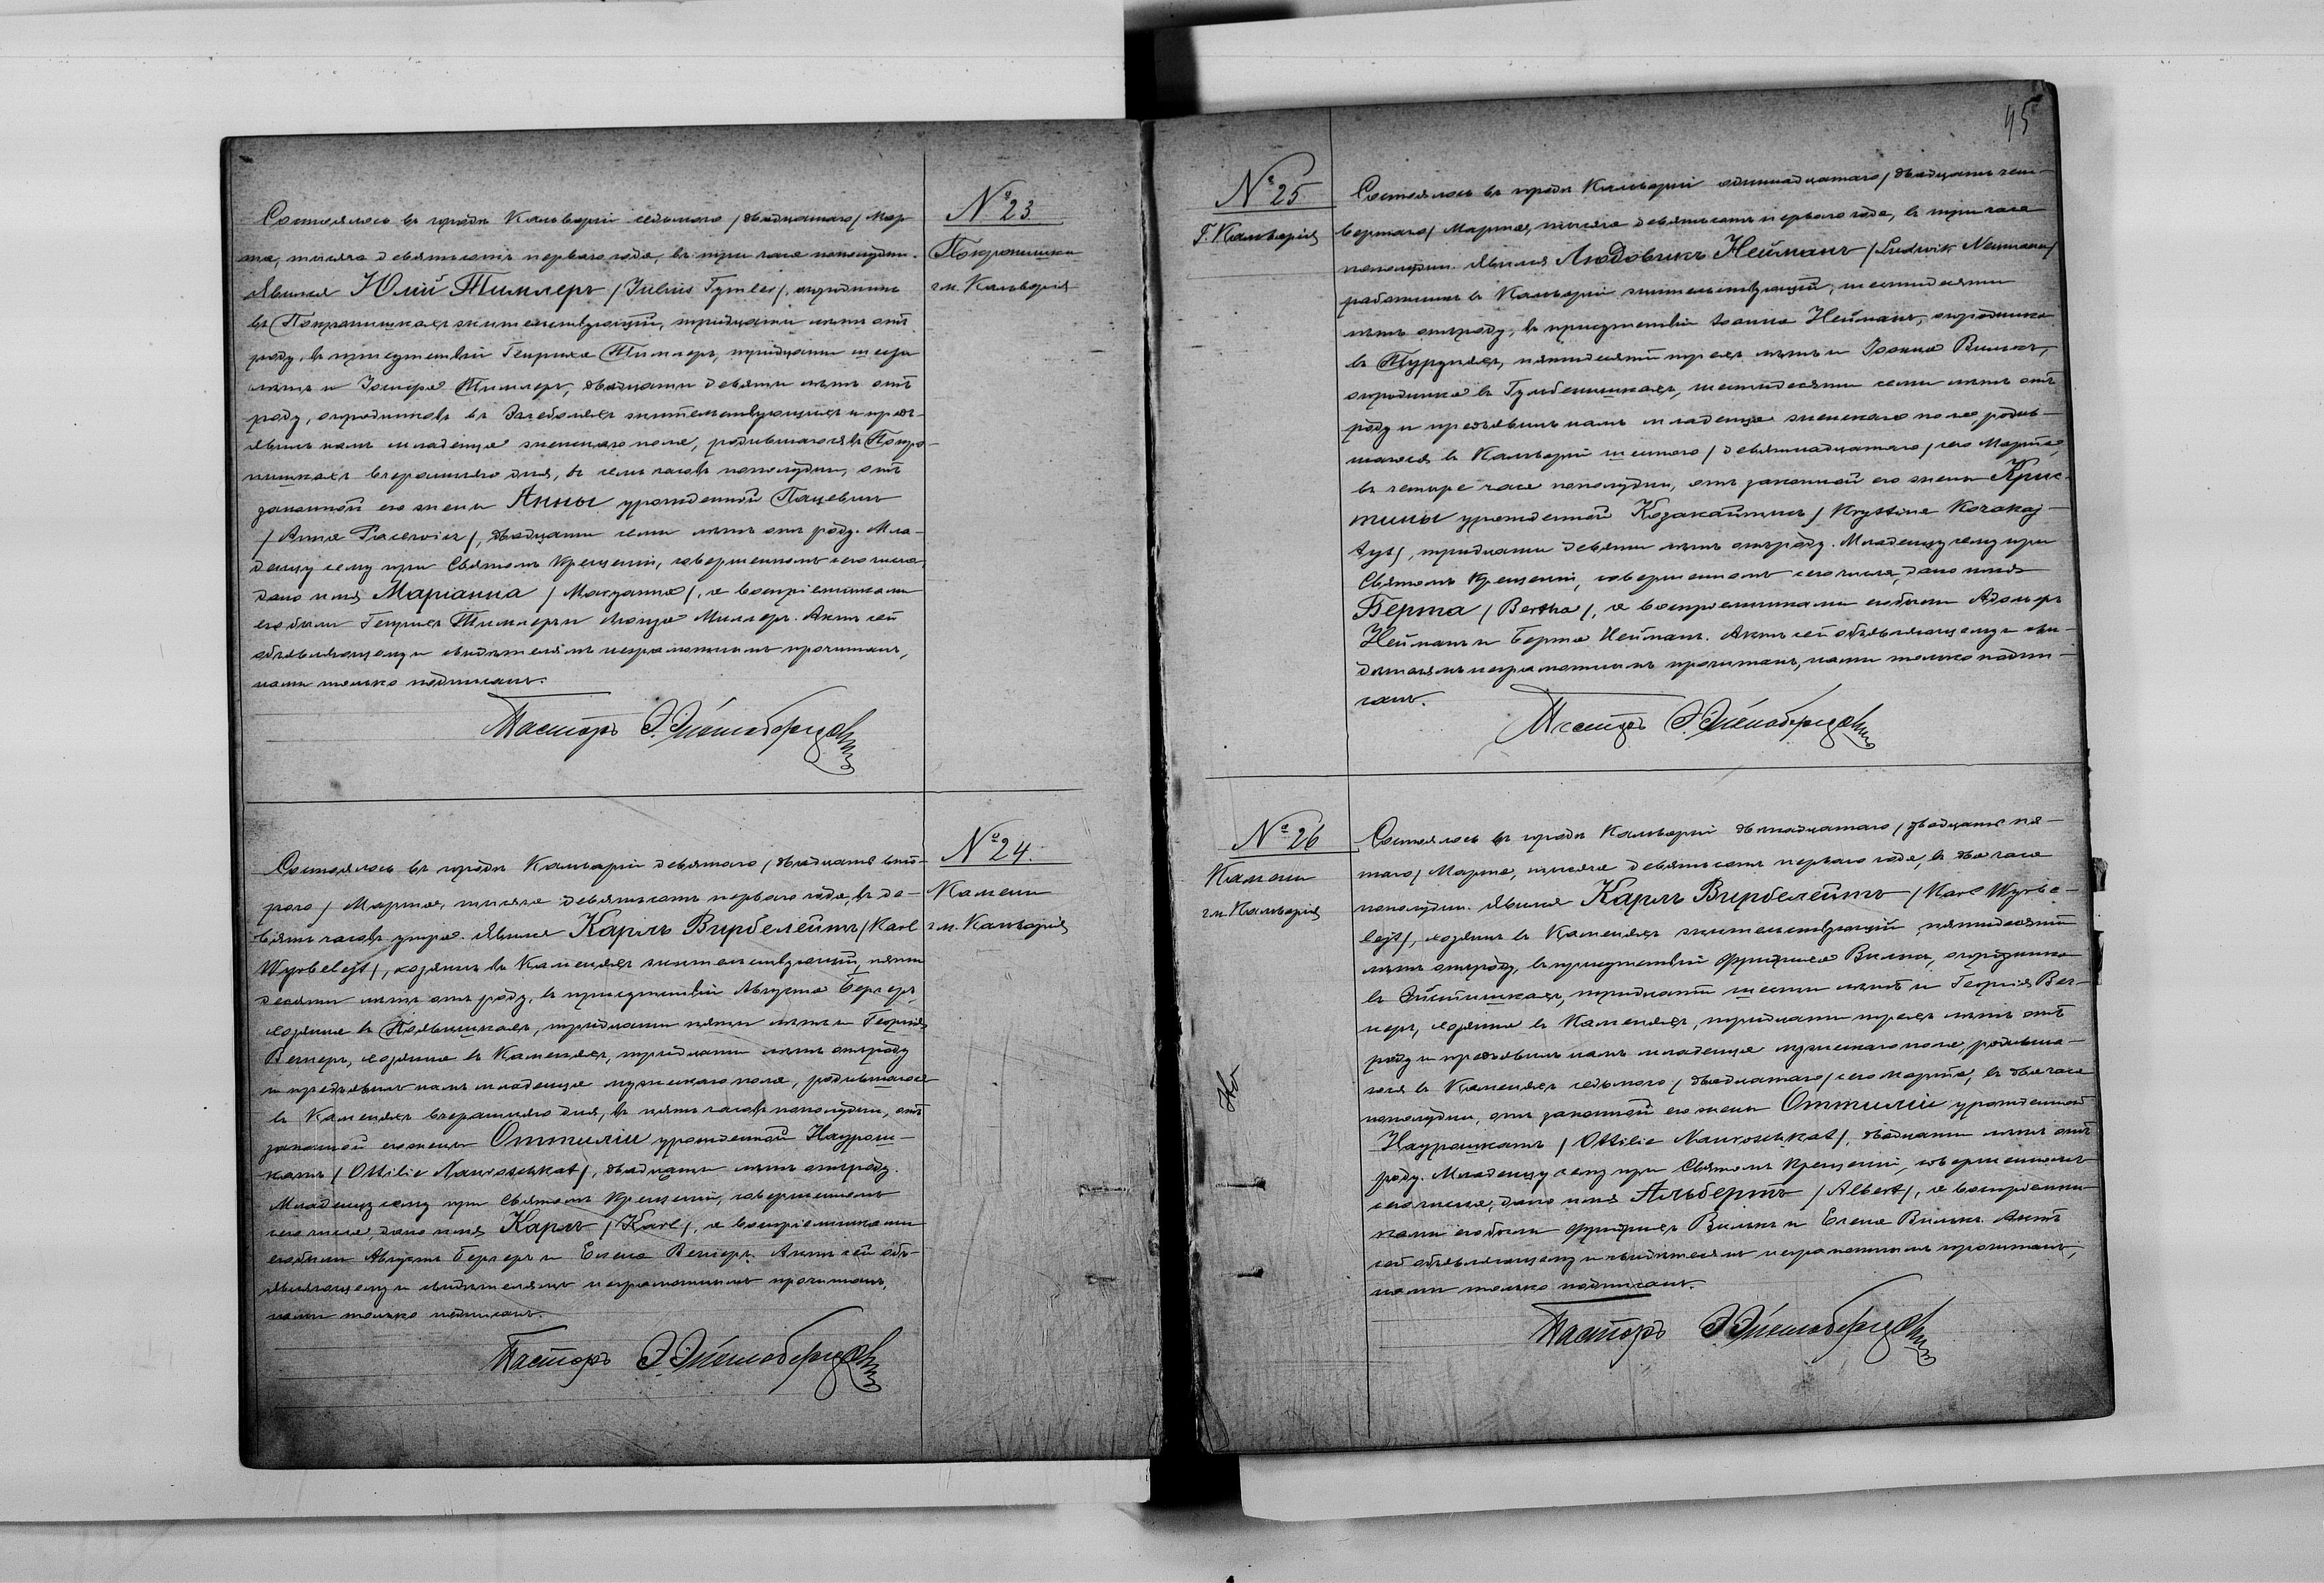 № 23
Покропишки
гм. Кальварія
Состоялось въ городѣ Кальваріи седьмого /двадцатаго/ Мар-
та, тысяча девятьсотъ перваго года, въ три часа пополудни.
Явился Юлій Тимлеръ /Julius Tymler/, огродникъ
въ Покропишкахъ жительствующій, тридцати лѣтъ отъ
роду, въ присутствіи Генриха Тимлеръ, тридцати шести
лѣтъ и Іосифа Тимлеръ, двадцати девяти лѣтъ отъ
роду, огродниковъ въ жительствующихъ и предъ-
явилъ намъ младенца женскаго пола, родившагося въ Покро-
пишкахъ вчерашняго дня, въ семь часовъ пополудни, отъ
законной его жены Анны урожденной Пацевичъ
/Anna Pacewicz/, двадцати семи лѣтъ отъ роду. Мла-
денцу сему при Святомъ Крещеніи, совершенномъ сего числа,
дано имя Маріанна /Maryanna/, а воспріемниками
его были Генрихъ Тимлеръ и Луиза Миллеръ. Актъ сей
объявляющему и свидѣтелямъ неграмотнымъ прочитанъ,
нами только подписанъ.
Пасторъ Э.
№ 24.
Камени
гм. Кальварія
Состоялось въ городѣ Кальваріи девятаго /двадцать вто-
рого/ Марта, тысяча девятьсотъ перваго года, въ де-
вять часовъ утра. Явился Карлъ Вирбелейтъ /Karl
Wyrbelejt/, хозяинъ въ Каменяхъ жительствующій, пяти-
десяти лѣтъ отъ роду, въ присутствіи Августа Бергеръ,
хозяина въ тридцати пяти лѣтъ и Георгія
Вегнеръ, хозяина въ Каменяхъ, тридцати лѣтъ отъ роду
и предъявилъ намъ младенца мужескаго пола, родившагося
въ Каменяхъ вчерашняго дня, въ пять часовъ пополудни, отъ
законной его жены Оттиліи урожденной Наурош-
катъ /Ottilie Nauroschkat/, двадцати лѣтъ отъ роду.
Младенцу сему при Святомъ Крещеніи, совершенномъ
сего числа, дано имя Карлъ /Karl/, а воспріемниками
его были Августъ Бергеръ и Елена Вегнеръ. Актъ сей объ-
являющему и свидѣтелямъ неграмотнымъ прочитанъ,
нами только подписанъ.
Пасторъ Э.
45
№ 25
Г. Кальварія
Состоялось въ городѣ Кальваріи одиннадцатаго /двадцать чет-
вертаго/ Марта, тысяча девятьсотъ перваго года, въ три часа
пополудни. Явился Людовикъ Нейманъ /Ludwik Neumann/
работникъ въ Кальваріи жительствующій, шестидесяти
лѣтъ отъ роду, въ присутствіи Іоанна Нейманъ, огродника
въ пятидесяти трехъ лѣтъ и Іоанна Вилькъ,
огродника въ Гумбенишкахъ, шестидесяти семи лѣтъ отъ
роду и предъявилъ намъ младенца женскаго пола, родив-
шагося въ Кальваріи шестого /девятнадцатаго/ сего Марта,
въ четыре часа пополудни, отъ законной его жены Крис-
тины урожденной Козакайтисъ /Krystine Kozakaj-
tys/, тридцати девяти лѣтъ отъ роду. Младенцу сему при
Святомъ Крещеніи, совершенномъ сего числа, дано имя
Берта /Bertha/, а воспріемниками его были Адольфъ
Нейманъ и Берта Нейманъ. Актъ сей объявляющему и сви-
дѣтелямъ неграмотнымъ прочитанъ, нами только подпи-
санъ.
Пасторъ Э.
№ 26
Камени
гм. Кальварія
Состоялось въ городѣ Кальваріи двѣнадцатаго /двадцать пя-
таго/ Марта, тысяча девятьсотъ перваго года, въ два часа
пополудни. Явился Карлъ Вирбелейтъ /Karl Wyrbe-
lejt/, хозяинъ въ Каменяхъ жительствующій, пятидесяти
лѣтъ отъ роду, въ присутствіи Фридриха Вилькъ, огродника
въ тридцати шести лѣтъ и Георгія Вег-
неръ, хозяина въ Каменяхъ, тридцати трехъ лѣтъ отъ
роду и предъявилъ намъ младенца мужескаго пола, родивша-
гося въ Каменяхъ седьмого /двадцатаго/ сего Марта, въ два часа
пополудни, отъ законной его жены Оттиліи урожденной
Наурошкатъ /Ottilie Nauroschkat/, двадцати лѣтъ отъ
роду. Младенцу сему при Святомъ Крещеніи, совершенномъ
сего числа, дано имя Альбертъ /Albert/, а воспріемни-
ками его были Фридрихъ Вилькъ и Елена Вилькъ. Актъ
сей объявляющему и свидѣтелямъ неграмотнымъ прочитанъ,
нами только подписанъ.
Пасторъ Э.